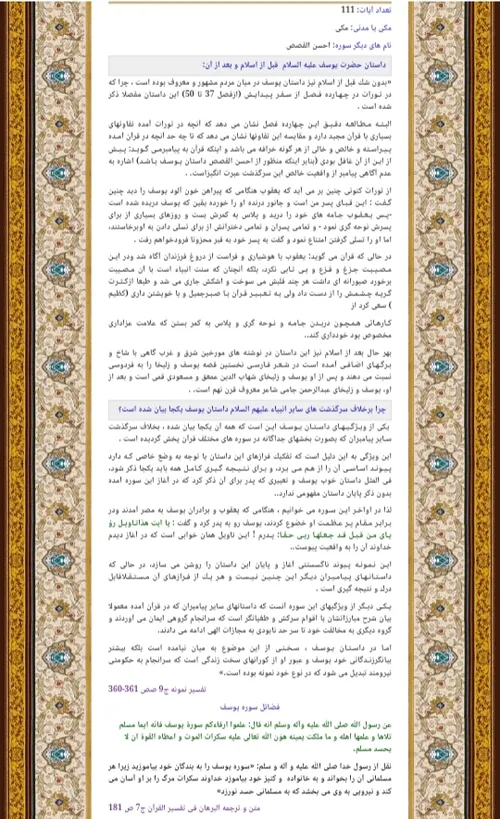 تعداد آیات: 111
مکی یا مدنی: مکی
نام های دیگر سوره: احسن القصص
داستان حضرت یوسف علیه السلام قبل از اسلام و بعد از آن:
«بدون شك قبل از اسلام نیز داستان یوسف در میان مردم مشهور و معروف بوده است ، چرا که
در تورات در چهارده فصل از سفر پیدایش (ازفصل 37 تا 50) این داستان مفصلا ذکر
شده است .
البته مطالعه دقیق این چهارده فصل نشان می دهد که آنچه در تورات آمده تفاوتهای
بسیاری با قرآن مجید دارد و مقایسه این تفاوتها نشان می دهد که تا چه حد آنچه در قرآن آمده
پیراسته و خالص و خالی از هر گونه خرافه می باشد و اینکه قرآن به پیامبرمی گوید: پیش
از این از آن غافل بودی (بنابر اینکه منظور از احسن القصص داستان یوسف باشد) اشاره به
عدم آگاهی پیامبر از واقعیت خالص این سرگذشت عبرت انگیزاست. .
از تورات کنونی چنین بر می آید که یعقوب هنگامی که پیراهن خون آلود یوسف را دید چنین
گفت : این قبای پسر من است و جانور درنده او را خورده یقین که یوسف دریده شده است
-پس یعقوب جامه های خود را درید و پلاس به کمرش بست و روزهای بسیاری از برای
پسرش نوحه گری نمود - و تمامی پسران و تمامی دخترانش از برای تسلی دادن به اوبرخاستند،
اما او را تسلی گرفتن امتناع نمود و گفت به پسر خود به قبر محزونا فرودخواهم رفت .
در حالی که قرآن می گوید: یعقوب با هوشیاری و فراست از دروغ فرزندان آگاه شد ودر این
مصیبت جزع و فزع و بی تابی نکرد، بلکه آنچنان که سنت انبیاء است با آن مصیبت
برخورد صبورانه ای داشت هر چند قلبش می سوخت و اشکش جاری می شد و طبعا ازکثرت
گریه چشمش را از دست داد ولی به تعبیر قرآن با صبرجمیل و با خویشتن داری (کظیم
) سعی کرد از
کارهائی همچون دریدن جامه و نوحه گری و پلاس به کمر بستن که علامت عزاداری
مخصوص بود خودداری کند..
بهر حال بعد از اسلام نیز این داستان در نوشته های مورخین شرق و غرب گاهی با شاخ و
برگهای اضافی آمده است در شعر فارسی نخستین قصه یوسف و زلیخا را به فردوسی
نسبت می دهند و پس از او یوسف و زلیخای شهاب الدین عمعق و مسعودی قمی است و بعد از
او، یوسف و زلیخای عبدالرحمن جامی شاعر معروف قرن نهم است. .
چرا برخلاف سرگذشت های سایر انبیاء علیهم السلام داستان یوسف یکجا بیان شده است؟
یکی از ویژگیهای داستان یوسف این است که همه آن یکجا بیان شده ، بخلاف سرگذشت
سایر پیامبران که بصورت بخشهای جداگانه در سوره های مختلف قرآن پخش گردیده است .
این ویژگی به این دلیل است که تفکیك فرازهای این داستان با توجه به وضع خاصی که دارد
پیوند اساسی آن را از هم می برد، و برای نتیجه گیری کامل همه باید یکجا ذکر شود،
فی المثل داستان خوب یوسف و تعبیری که پدر برای آن ذکر کرد که در آغاز این سوره آمده
بدون ذکر پایان داستان مفهومی ندارد..
لذا در اواخر این سوره می خوانیم ، هنگامی که یعقوب و برادران یوسف به مصر آمدند ودر
برابر مقام پر عظمت او خضوع کردند، یوسف رو به پدر کرد و گفت : یا ابت هذاتاویل رؤ
یای من قبل قد جعلها ربی حقا؛ پدرم ! این تاویل همان خوابی است که در آغاز دیدم
خداوند آن را به واقعیت پیوست..
این نمونه پیوند ناگسستنی آغاز و پایان این داستان را روشن می سازد، در حالی که
داستانهای پیامبران دیگر این چنین نیست و هر یك از فرازهای آن مستقلاقابل
درك و نتیجه گیری است .
یکی دیگر از ویژگیهای این سوره آنست که داستانهای سایر پیامبران که در قرآن آمده معمولا
بیان شرح مبارزاتشان با اقوام سرکش و طغیانگر است که سرانجام گروهی ایمان می آوردند و
گروه دیگری به مخالفت خود تا سر حد نابودی به مجازات الهی ادامه می دادند.
اما در داستان یوسف ، سخنی از این موضوع به میان نیامده است بلکه بیشتر
بیانگرزندگانی خود یوسف و عبور او از کورانهای سخت زندگی است که سرانجام به حکومتی
نیرومند تبدیل می شود که در نوع خود نمونه بوده است.»
تفسیر نمونه ج9 صص 361-360
فضائل سوره یوسف
عن رسول الله صلی الله علیه وآله وسلم انه قال: علموا ارقاءکم سورة یوسف فانه ایما مسلم
تلاها و علمها اهله و ما ملکت یمینه هون الله تعالی علیه سکرات الموت و اعطاه القوة ان لا
یحسد مسلم.
نقل از رسول خدا صلی الله علیه و آله و سلم: «سوره یوسف را به بندگان خود بیاموزید زیرا هر
مسلمانی آن را بخواند و به خانواده و کنیز خود بیاموزد خداوند سکرات مرگ را بر او آسان می
کند و نیرویی به وی می بخشد که به مسلمانی حسد نورزد»
متن و ترجمه البرهان فی تفسیر القرآن ج7 ص 181